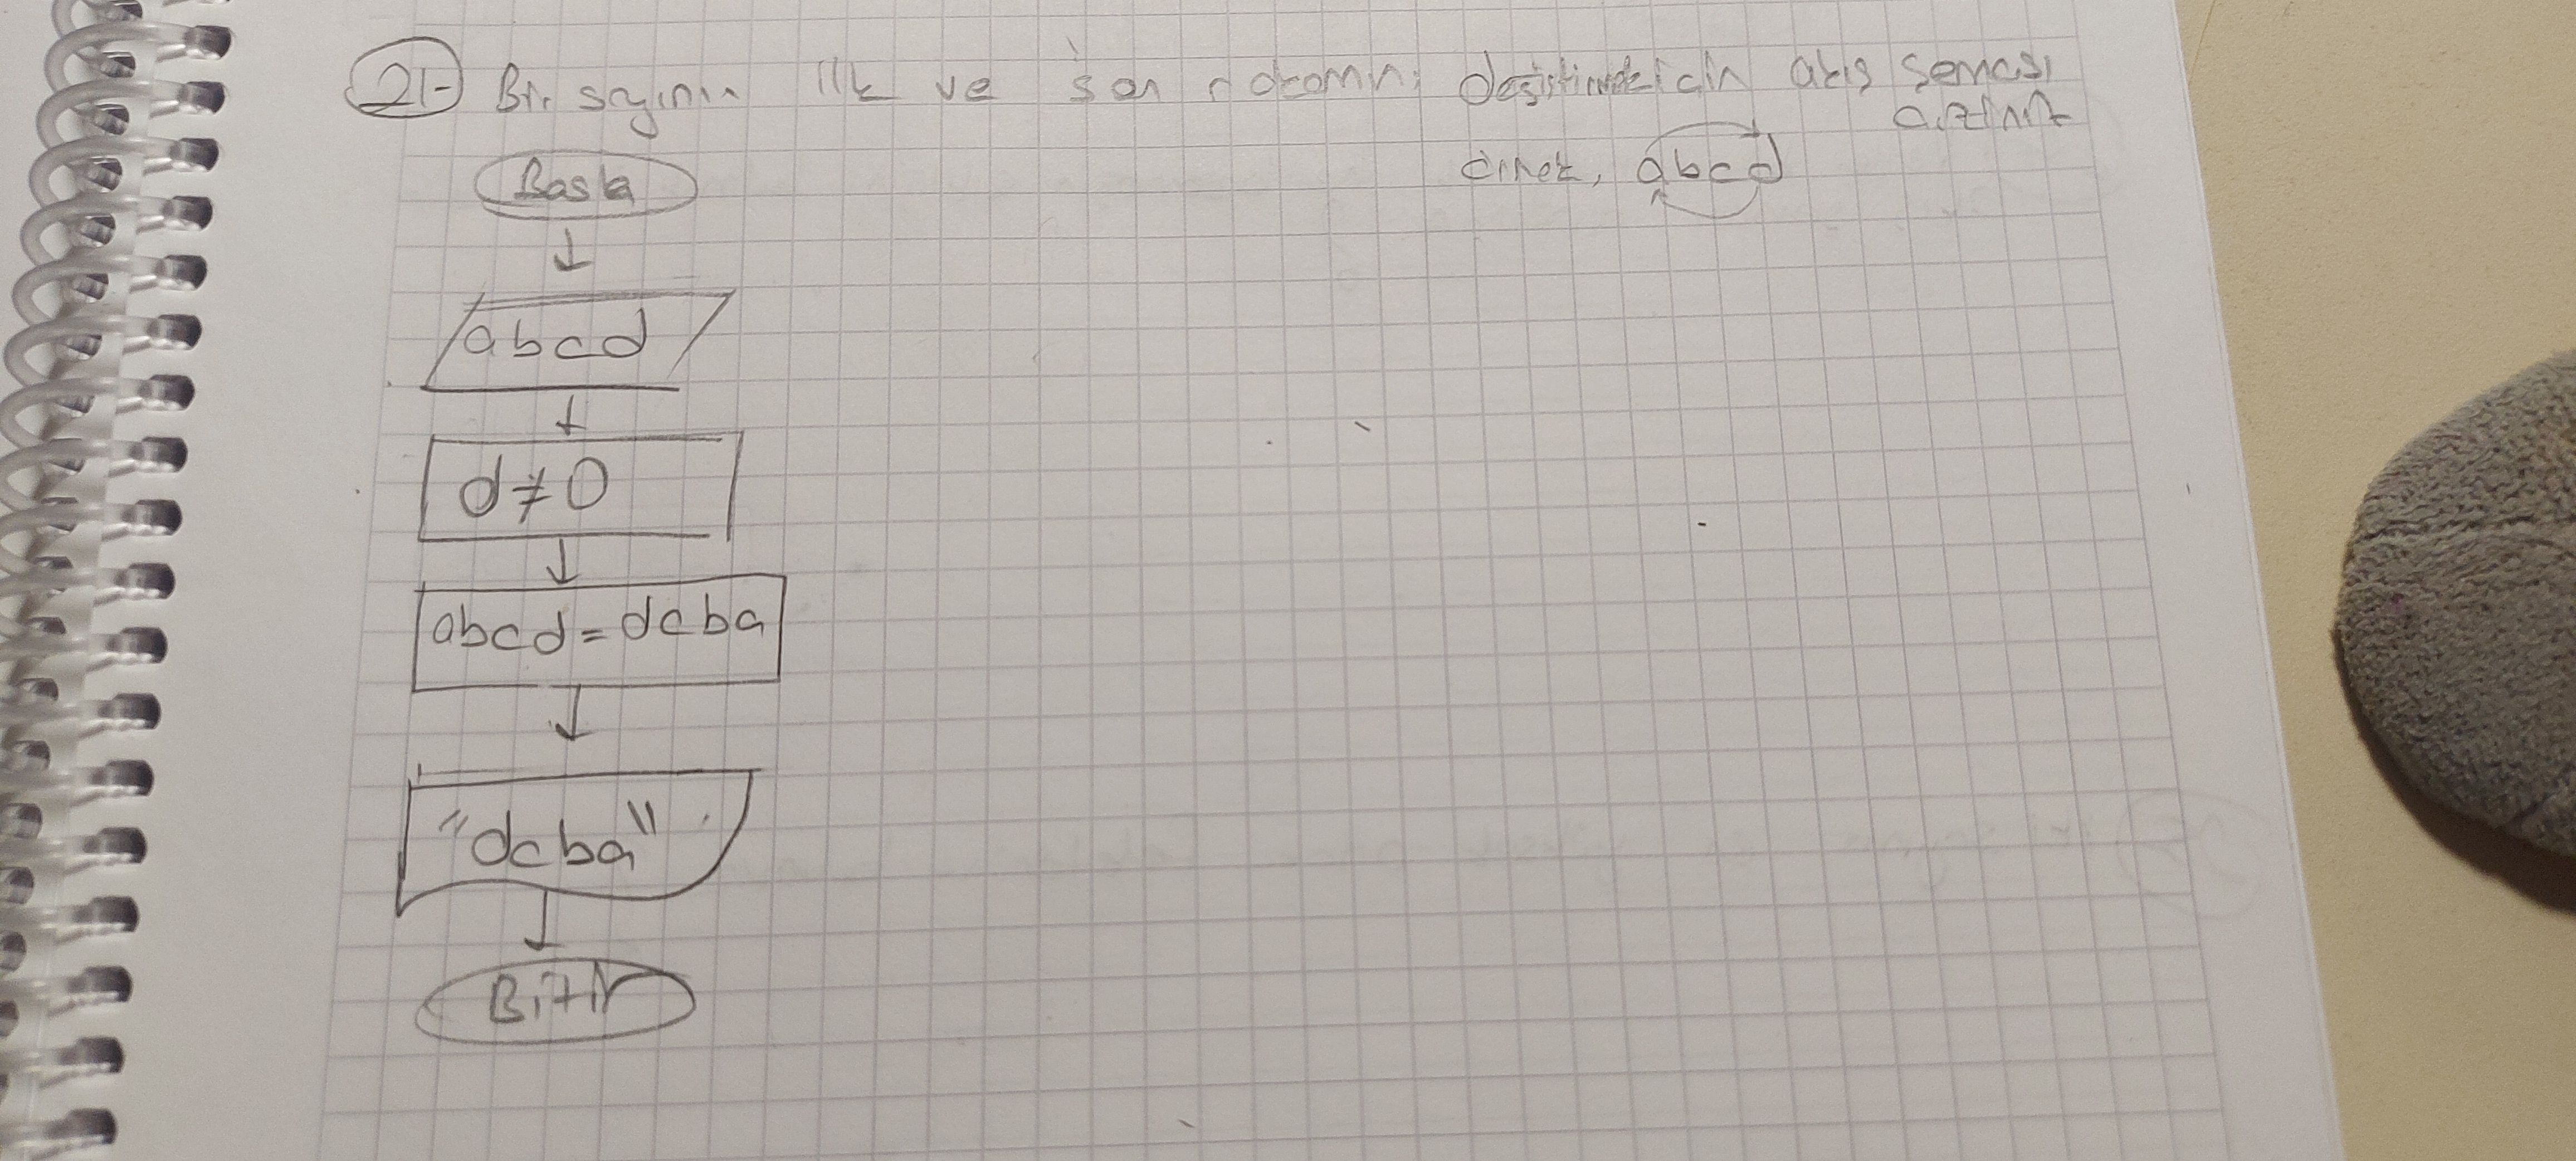 21- Bir sayının ilk ve son rakamını değiştirmek için akış şeması
çiziniz
örnek, abcd
Başla
abcd
d≠0
abcd = dcba
"dcba"
BİTİR